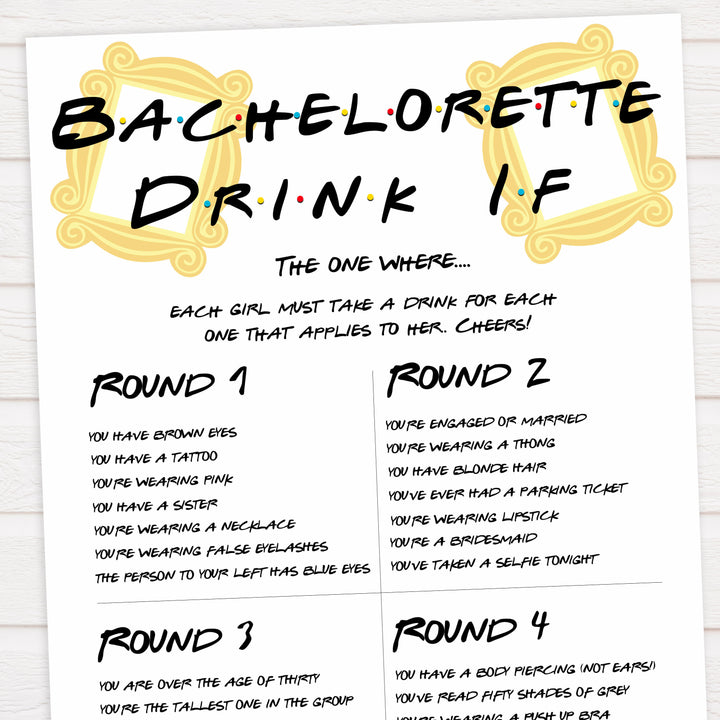 BACHELORETTE
DRINK IF
THE ONE WHERE....
EACH GIRL MUST TAKE A DRINK FOR EACH
ONE THAT APPLIES TO HER.. CHEERS!
ROUND 1
YOU HAVE BROWN EYES
YOU HAVE A TATTOO
YOU'RE WEARING PINK
YOU HAVE A SISTER
YOU'RE WEARING A NECKLACE
YOU'RE WEARING FALSE EYELASHES
THE PERSON TO YOUR LEFT HAS BLUE EYES
ROUND 2
YOU'RE ENGAGED OR MARRIED
YOU'RE WEARING A THONG
YOU HAVE BLONDE HAIR
YOU'VE EVER HAD A PARKING TICKET
YOU'RE WEARING LIPSTICK
YOU'RE A BRIDESMAID
YOU'VE TAKEN A SELFIE TONIGHT
ROUND 3
YOU ARE OVER THE AGE OF THIRTY
YOU'RE THE TALLEST ONE IN THE GROUP
ROUND 4
YOU HAVE A BODY PIERCING (NOT EARS!)
YOU'VE READ FIFTY SHADES OF GREY
YOU'RE WEARING A PUSH UP BRA